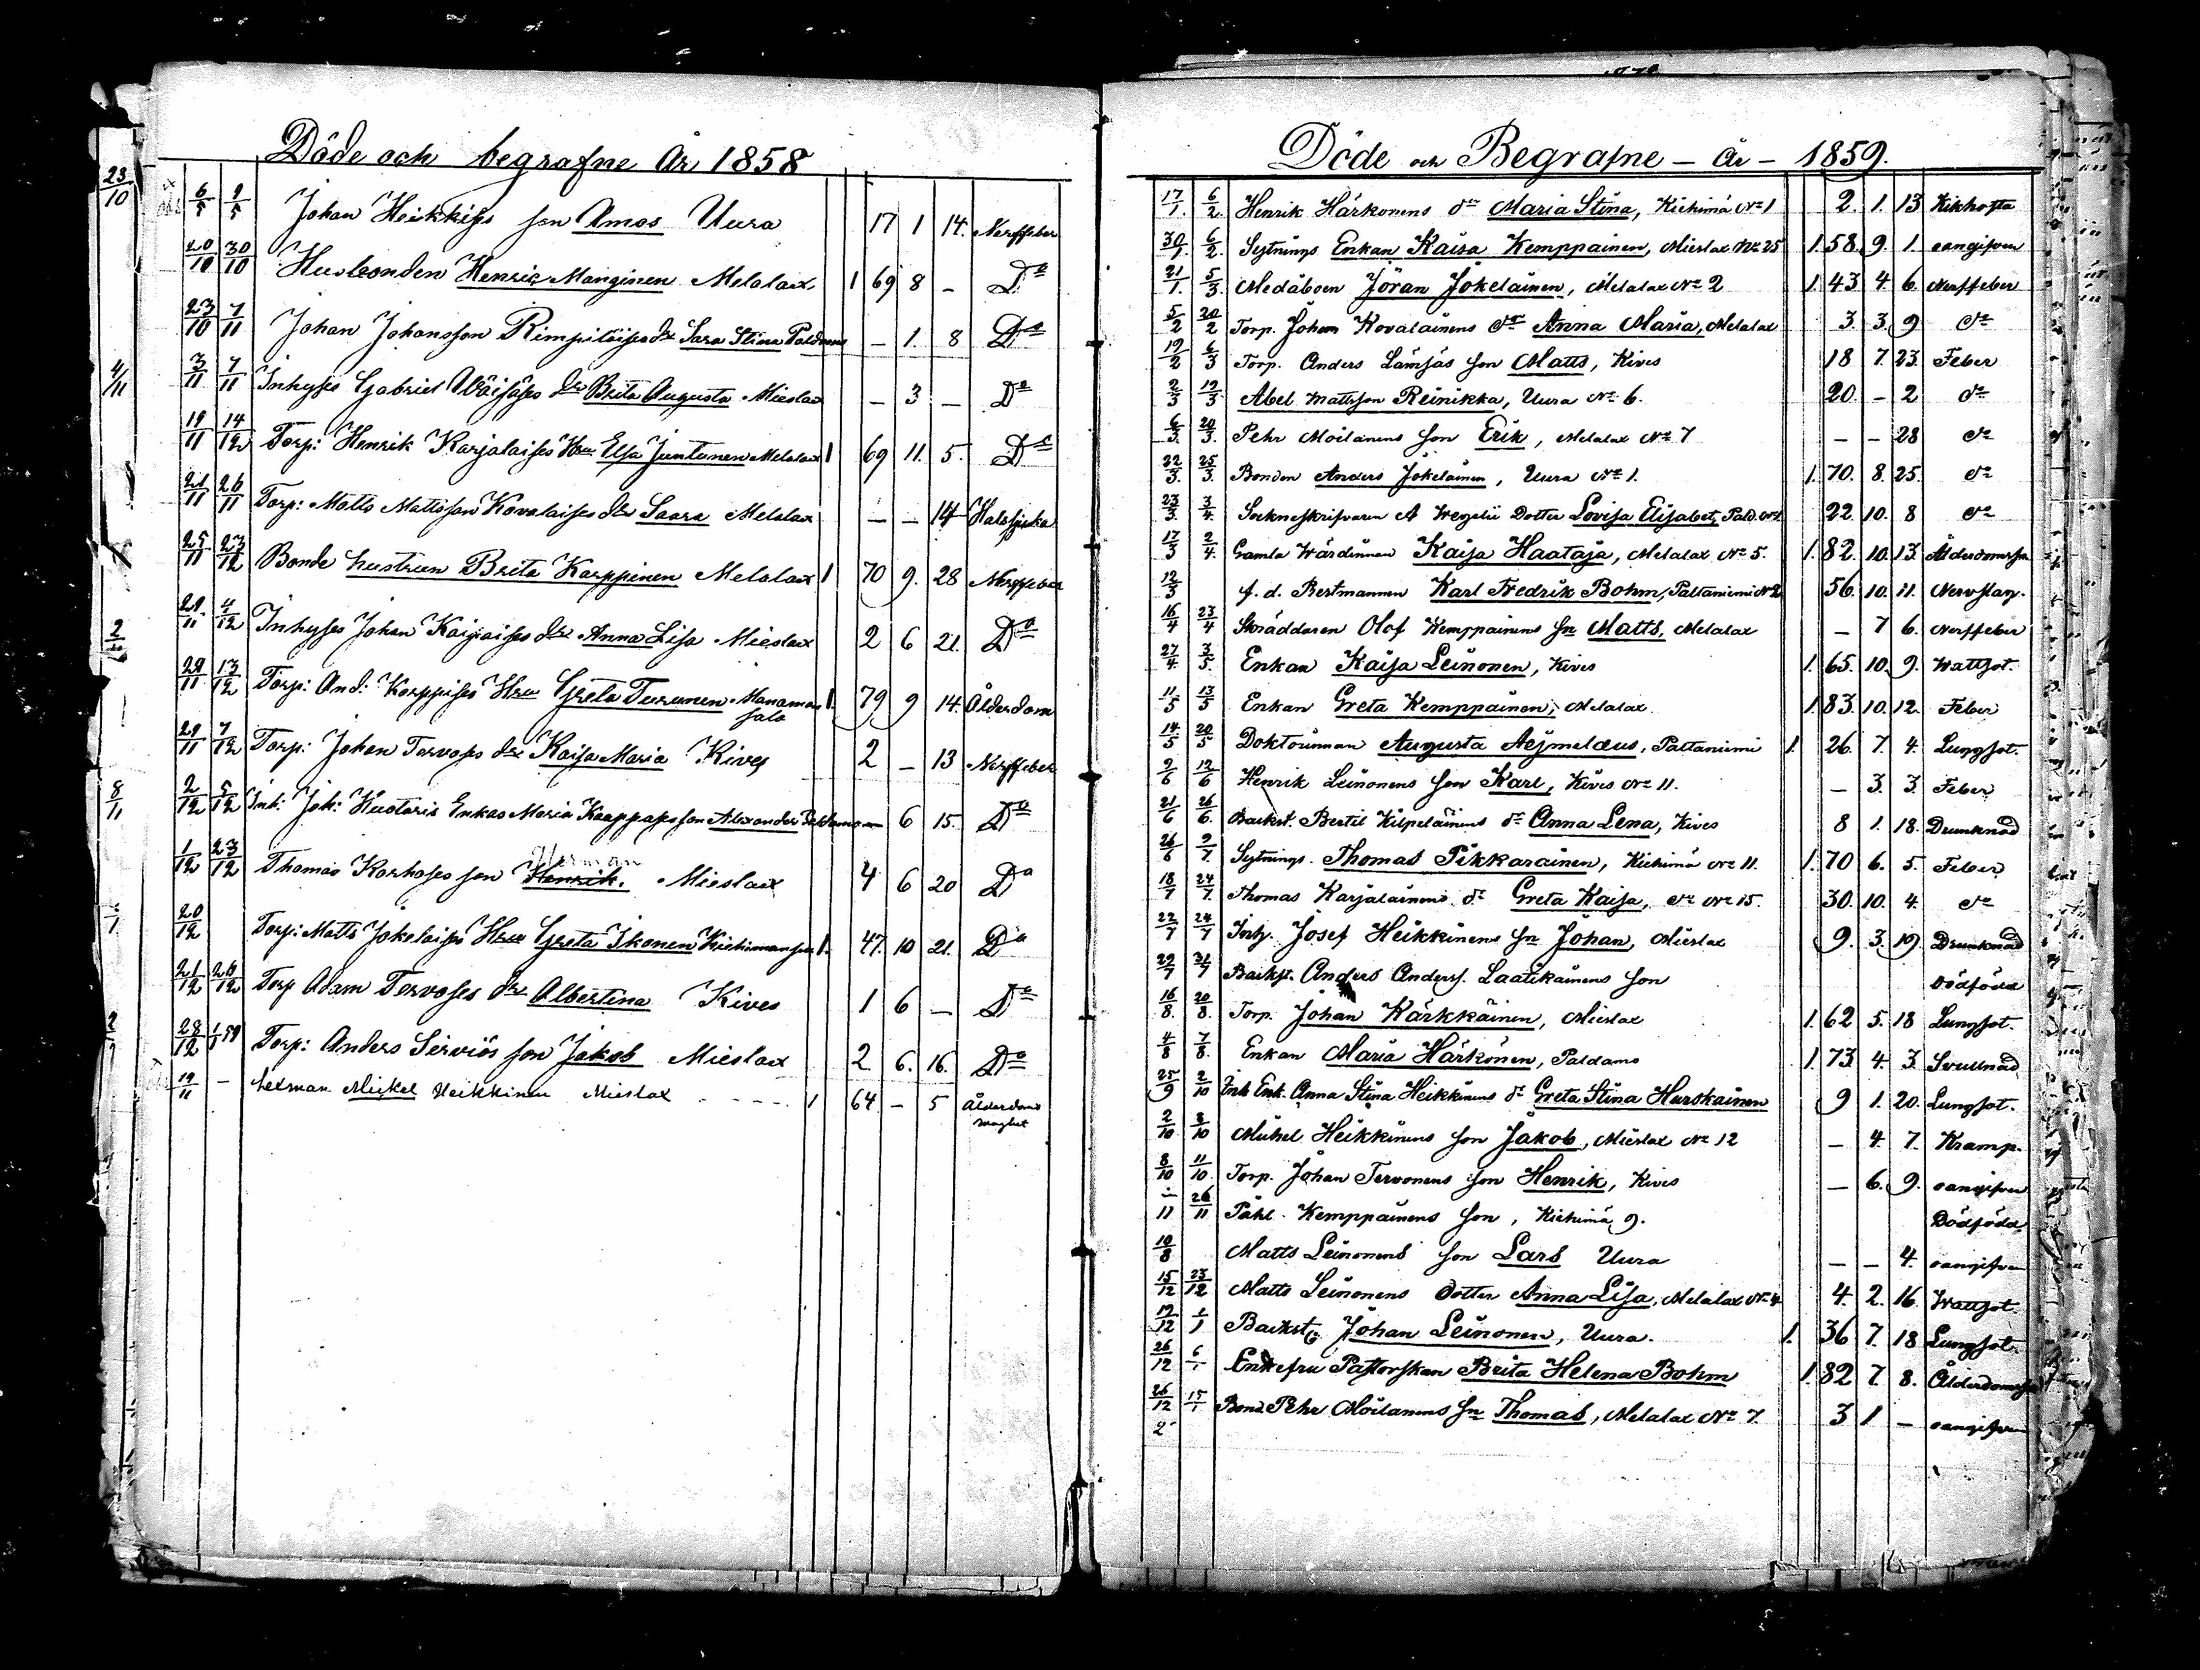 Döde och begrafne År 1858
6/5 9/5 Johan Heikkises son Amos Uura 17 1 14. Nerffeber
20/10 30/10 Husbonden Henric Manginen Melalax 1 69 8 - Do
23/10 7/11 Johan Johansson Rimpiläises dr Sara Stina Paldamo - 1 8 Do
3/11 7/11 Inhyses Gabriel Väisäses dr Brita Augusta Mieslax - 3 - Do
19/11 14/12 Torp: Henrik Karjalaises Hru Elsa Juntunen Melalax 1 69 11. 5. Do
21/11 26/11 Torp: Matts Mattsson Kovalaises dr Saara Melalax - - 14 Halssjuka
25/11 23/12 Bonde hustrun Brita Karppinen Melalax 1 70 9. 28 Nerffeber
29/11 4/12 Inhyses Johan Kaipaises dr Anna Lisa Mieslax 2 6 21. Do
29/11 13/12 Torp: And: Korppises Hru Greta Turunen Manaman salo 1. 79 9 14. Ålderdom
29/11 7/12 Torp: Johan Tervoses dr Kaisa Maria Kives 2 - 13 Nerffeber
2/12 5/12 Inh: Joh: Huotaris Enkas Maria Kaappases son Alexander Paldamo - 6 15. Do
1/12 23/12 Thomas Karhoses son Henrik. Herman Mieslax 4 6 20 Do
20/12 Torp: Matts Jokelaises Hru Greta Ikonen Kiehimänsuu 1. 47. 10 21. Do
21/12 26/12 Torp Adam Tervoses dr Albertina Kives 1 6 - Do
28/12 1/1 59 Torp: Anders Serviös son Jakob Mieslax 2 6. 16. Do
19/11 - Lexman Mickel Heikkinen Mieslax 1 64 - 5 Ålderdoms svaghet
Döde och Begrafne - År - 1859.
17/1. 6/2. Henrik Härkonens dr Maria Stina, Kiehimä No 1 2. 1. 13 Kikhosta
30/1. 6/2. Sytnings Enkan Kaisa Kemppainen, Mieslax No 25 1. 58. 9. 1. oangifven
21/1. 5/3. Medåboen Jöran Jokelainen, Melalax No 2 1. 43 4 6. Nerffeber
5/2 20/2 Torp. Johan Kovalainens dr Anna Maria, Melalax 3. 3. 9 do
19/2 6/3 Torp. Anders Lämsäs son Matts, Kives 18 7. 23. Feber
2/3 13/3. Abel Mattsson Reinikka, Uura No 6. 20. - 2 do
6/3. 20/3. Pehr Moilanens son Erik, Melalax No 7 - - 28 do
22/3. 25/3. Bonden Anders Jokelainen, Uura No 1. 1. 70. 8. 25. do
23/3. 3/4. Sockneskrifvaren A Wegelii Dotter Lovisa Elisabet, Pald. No 1 22. 10. 8 do
17/3 2/4. Gamla Wärdinnan Kaisa Haataja, Melalax No 5. 1. 82. 10. 13.
12/3 f. d. Bertmannen Karl Fredrik Bohm, Paltaniemi No 2 56. 10. 11. Nervslag.
16/4 23/4 Skräddaren Olof Kemppainens sn Matts, Melalax - 7 6. Nerffeber
27/4 3/5. Enkan Kaisa Leinonen, Kives 1. 65. 10. 9. Wattsot.
11/5 13/5 Enkan Greta Kemppainen, Melalax 1. 83. 10. 12. Feber
14/5 20/5 Doktorinnan Augusta Aejmelæus, Paltaniemi 1. 26. 7. 4. Lungsot.
9/6 12/6 Henrik Leinonens son Karl, Kives No 11. - 3. 3. Feber
21/6 26/6. Backst. Bertil Kilpeläinens dr Anna Lena, Kives 8 1. 18. Drunknad
26/6 9/7. Sytnings. Thomas Pikkarainen, Kiehimä No 11. 1. 70 6. 5. Feber
18/7 24/7. Thomas Karjalainens dr Greta Kaisa, do No 15. 30. 10. 4. do
22/7 24/7 Inhy. Josef Heikkinens sn Johan, Mieslax 9. 3. 19. Drunknad
29/7 31/7 Backst. Anders Anders. Laatikainens son Dödfödd
16/8 20/8. Torp. Johan Kärkkäinen, Mieslax 1. 62 5. 18 Lungsot.
4/8 7/8. Enkan Maria Härkönen, Paldamo 1. 73 4. 3. Svullnad
25/9 2/10 Inh Enk. Anna Stina Heikkinens dr Greta Stina Hurskainen 9 1. 20. Lungsot.
2/10 8/10 Mickel Heikkinens son Jakob, Mieslax No 12 - 4. 7. Kramp.
8/10 11/10. Torp. Johan Tervonens son Henrik, Kives - 6. 9. oangifven
11 26/11 Påhl Kemppainens son, Kiehimä 9. Dödfödd
19/8 Matts Leinonens son Lars Uura - - 4. oangifven
15/12 23/12 Matts Leinonens Dotter Anna Lisa, Melalax No 4 4. 2. 16. Wattsot
19/12 1/1 Backst. Johan Leinonen, Uura. 1. 36 7. 18 Lungsot.
26/12 6/1 Enkefru Pastorskan Brita Helena Bohm 1. 82 7. 8.
26/12 15/1 Bond. Pehr Moilanens sn Thomas, Melalax No 7. 3 1 - oangifven